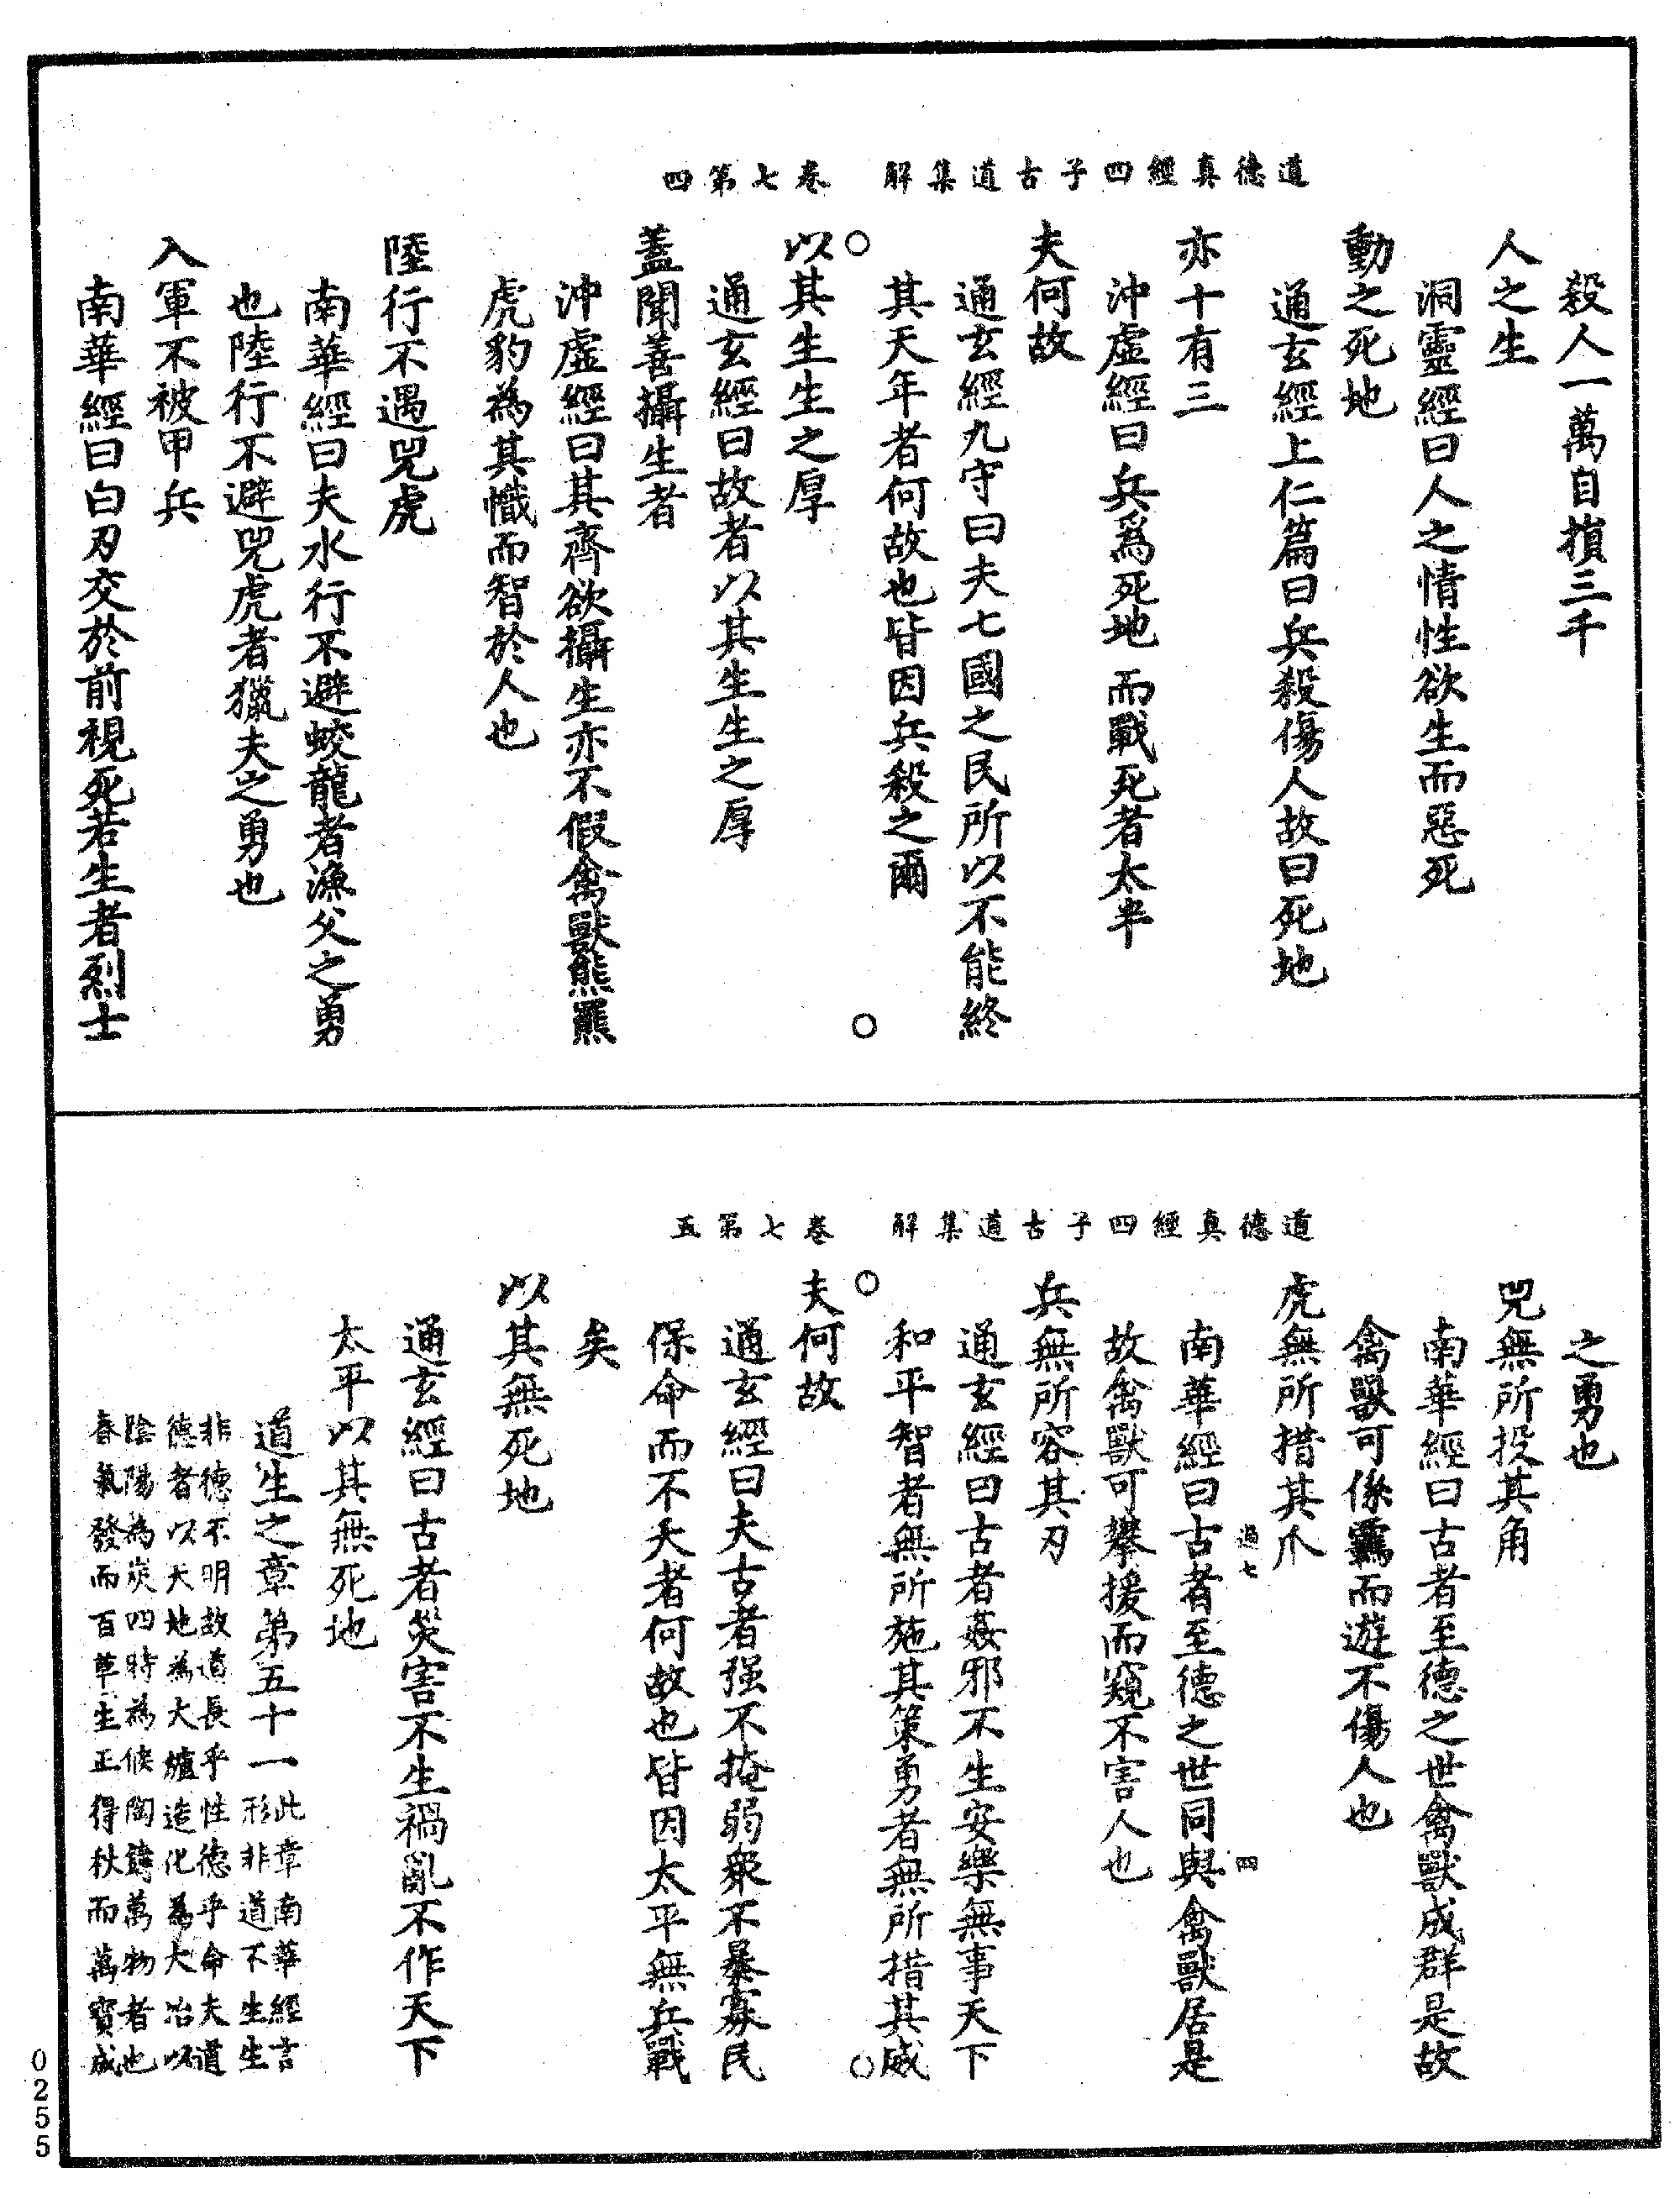 道德真經四子古道集解　卷七第四
殺人一萬自損三千
人之生
洞靈經曰人之情性欲生而惡死
動之死地
通玄經上仁篇曰兵殺傷人故曰死地
亦十有三
沖虛經曰兵爲死地而戰死者太半
夫何故
通玄經九守曰夫七國之民所以不能終
其天年者何故也皆因兵殺之爾
○　○
以其生生之厚
通玄經曰故者以其生生之厚
蓋聞善攝生者
沖虛經曰其齊欲攝生亦不假禽獸熊羆
虎豹為其幟而智於人也
陸行不遇兕虎
南華經曰夫水行不避蛟龍者漁父之勇
也陸行不避兕虎者獵夫之勇也
入軍不被甲兵
南華經曰白刃交於前視死若生者烈士
道德真經四子古道集解　卷七第五
之勇也
兕無所投其角
南華經曰古者至德之世禽獸成群是故
禽獸可係羈而遊不傷人也
虎無所措其爪
過七　四
南華經曰古者至德之世同與禽獸居是
故禽獸可攀援而窺不害人也
兵無所容其刃
通玄經曰古者姦邪不生安樂無事天下
和平智者無所施其策勇者無所措其威
○　○
夫何故
通玄經曰夫古者强不掩弱衆不暴寡民
保命而不夭者何故也皆因太平無兵戰
矣
以其無死地
通玄經曰古者災害不生禍亂不作天下
太平以其無死地
道生之章第五十一
此章南華經言
形非道不生生
非德不明故道長乎性德乎命夫道
德者以天地為大爐造化為大冶以
陰陽為炭四時為候陶鑄萬物者也
春氣發而百草生正得秋而萬寶成
0255